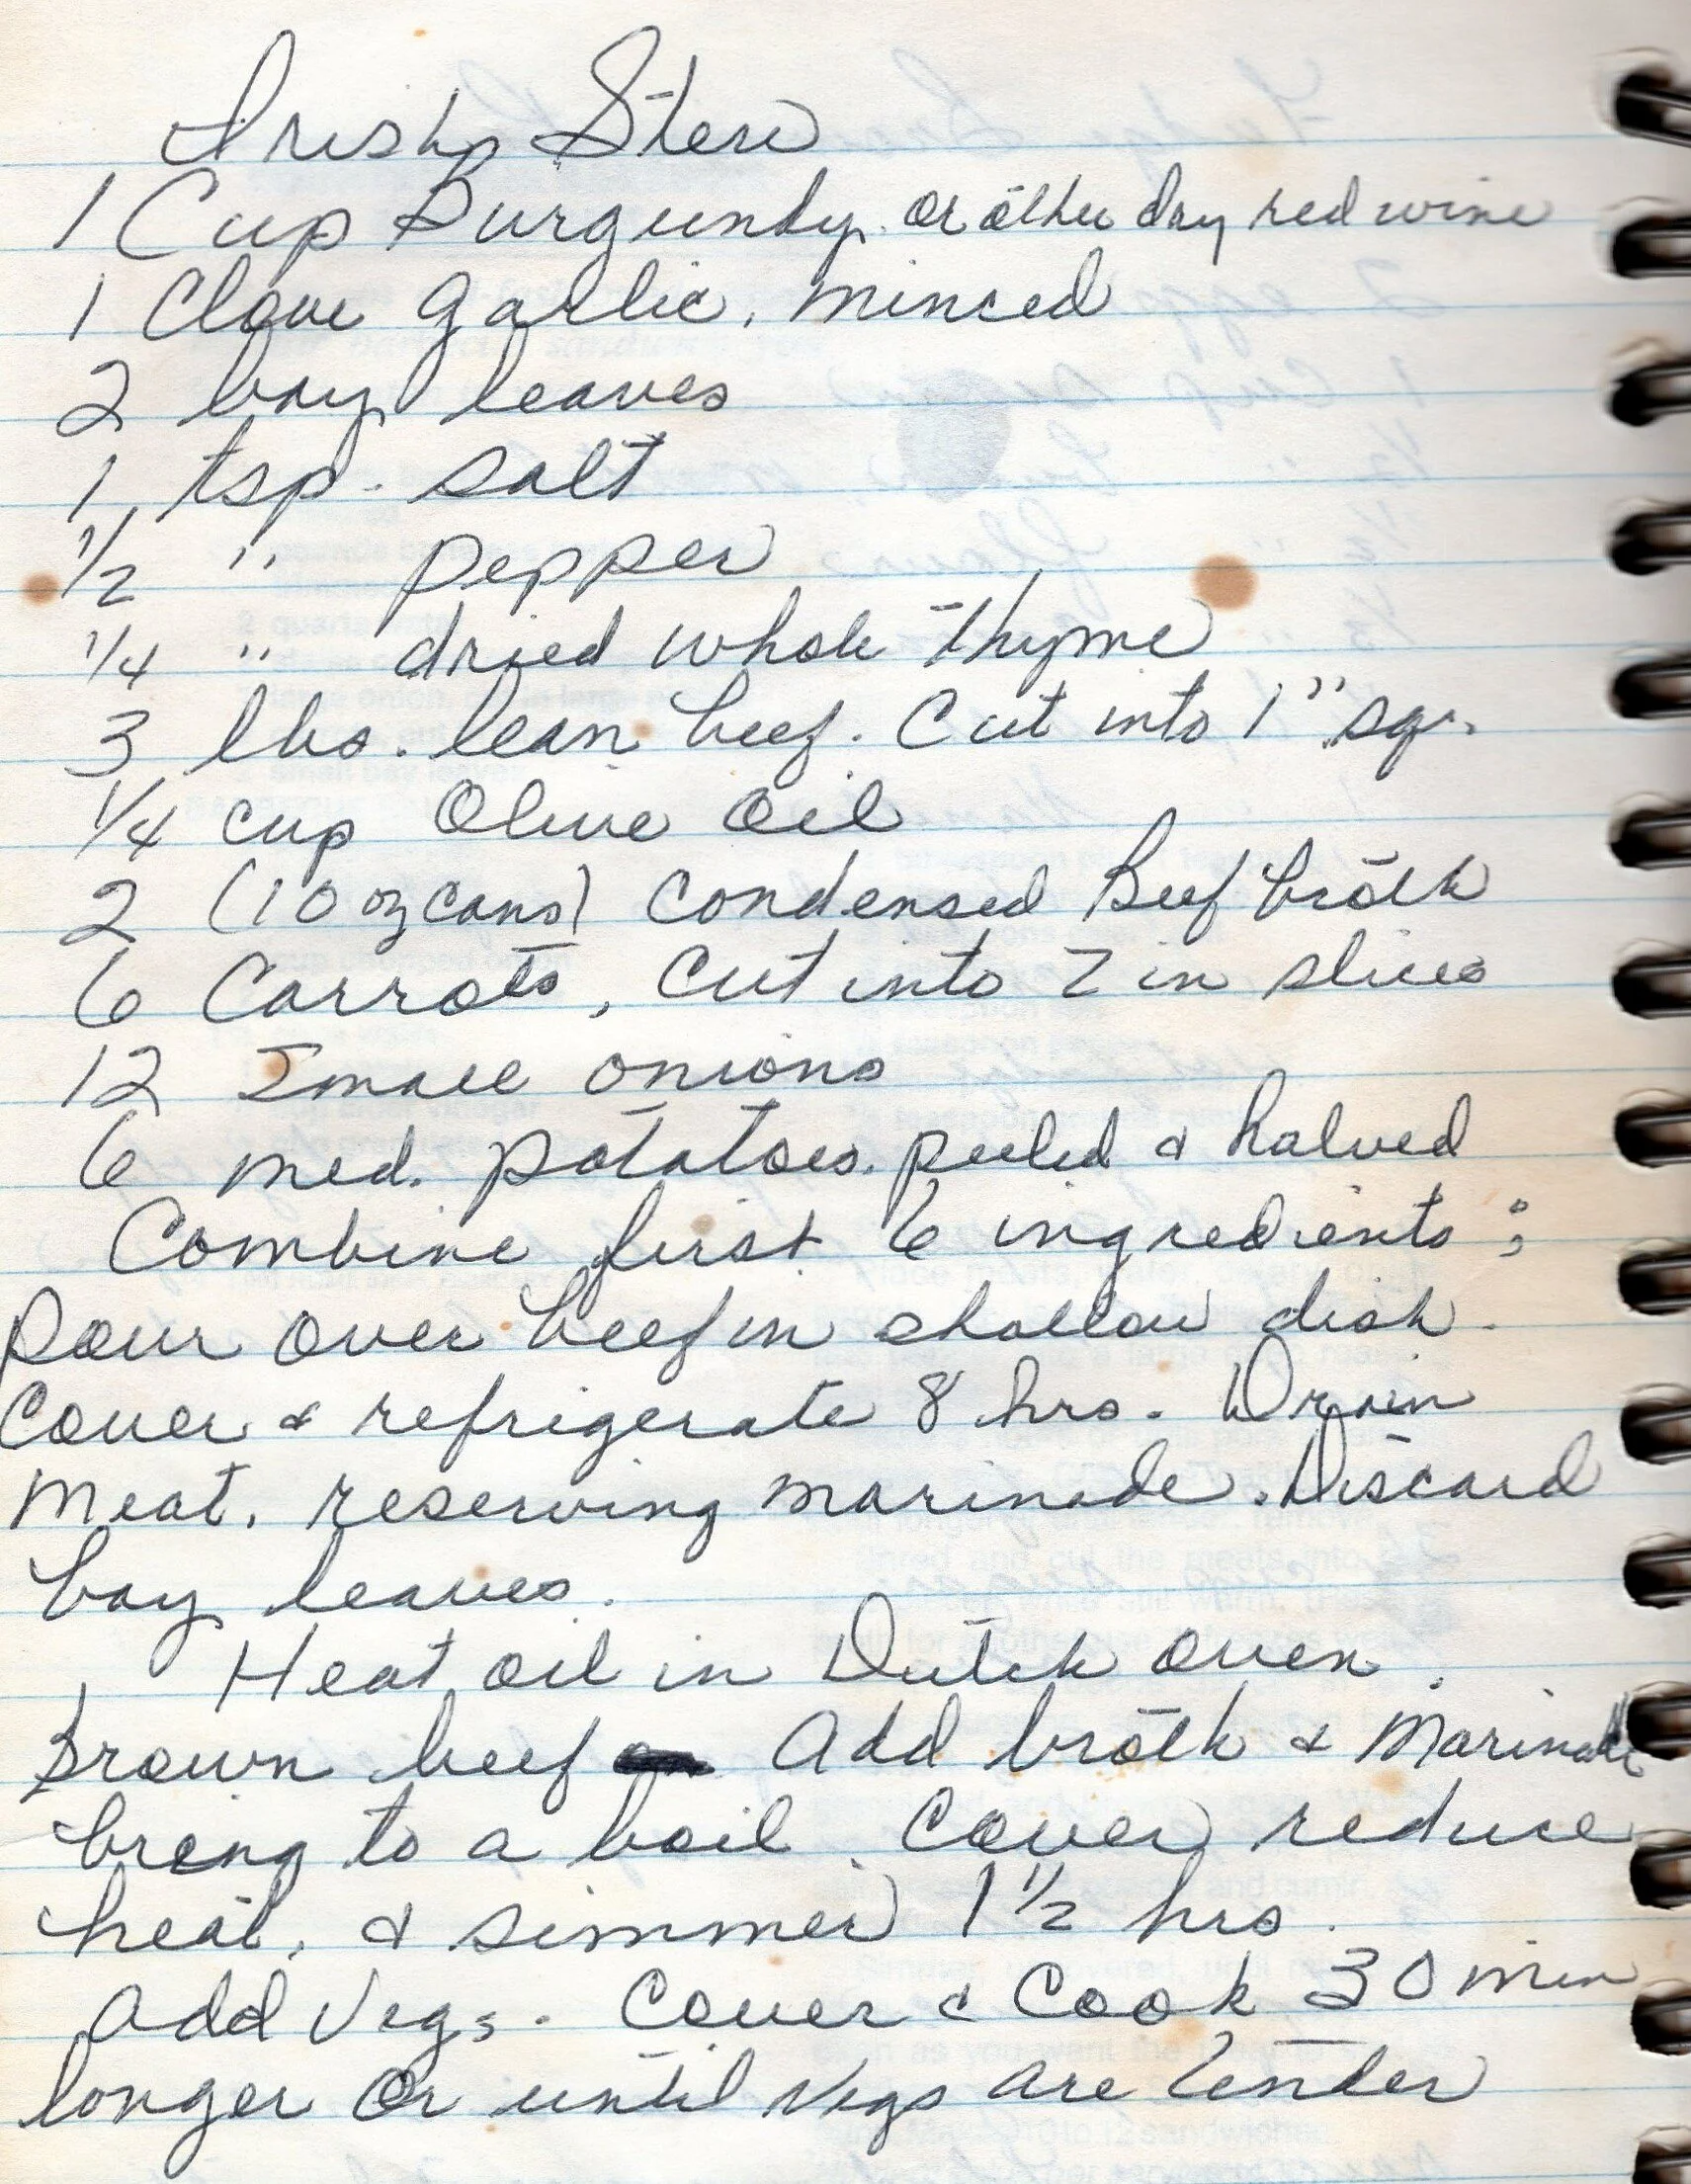 Irish Stew
1 Cup Burgundy or other dry red wine
1 Clove garlic, minced
2 bay leaves
1 tsp. salt
1/2 " pepper
1/4 " dried whole thyme
3 lbs. lean beef. Cut into 1" sq.
1/4 cup Olive Oil
2 (10 oz cans) Condensed Beef broth
6 Carrots, Cut into 2 in slices
12 Small onions
6 med. potatoes. peeled & halved
Combine first 6 ingredients;
Pour over beef in shallow dish.
Cover & refrigerate 8 hrs. Drain
Meat, reserving marinade. Discard
bay leaves.
Heat oil in Dutch oven.
Brown beef Add broth & Marinade
bring to a boil. Cover, reduce
heat, & simmer 1 1/2 hrs.
Add Vegs. Cover & Cook 30 min
longer Or until Vegs are tender